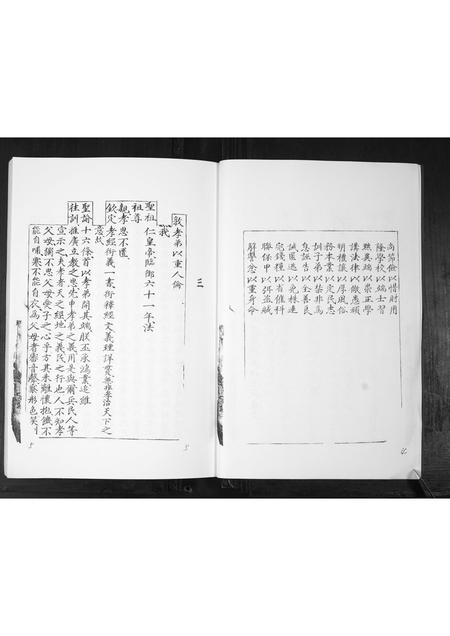 尚節儉以惜財用
隆學校以端士習
黜異端以崇正學
講法律以儆愚頑
明禮讓以厚風俗
務本業以定民志
訓子弟以禁非為
息誣告以全善良
誡匿逃以免株連
完錢糧以省催科
聯保甲以弭盜賊
解讐忿以重身命
4
三
敦孝弟以重人倫
我
聖祖仁皇帝臨御六十一年法
祖尊
親孝思不匱
欽定孝經衍義一書衍釋經文義理詳貫無非孝治天下之
意故
聖諭十六條首以孝弟開其端朕丕承鴻業追維
往訓推廣立教之思先申孝弟之義用是與爾兵民人等
宣示之夫孝者天之經地之義民之行也人不知孝
父母獨不思父母愛子之心乎方其未離懷抱饑不
能自哺寒不能自衣為父母者審音聲察形色笑則
5
5